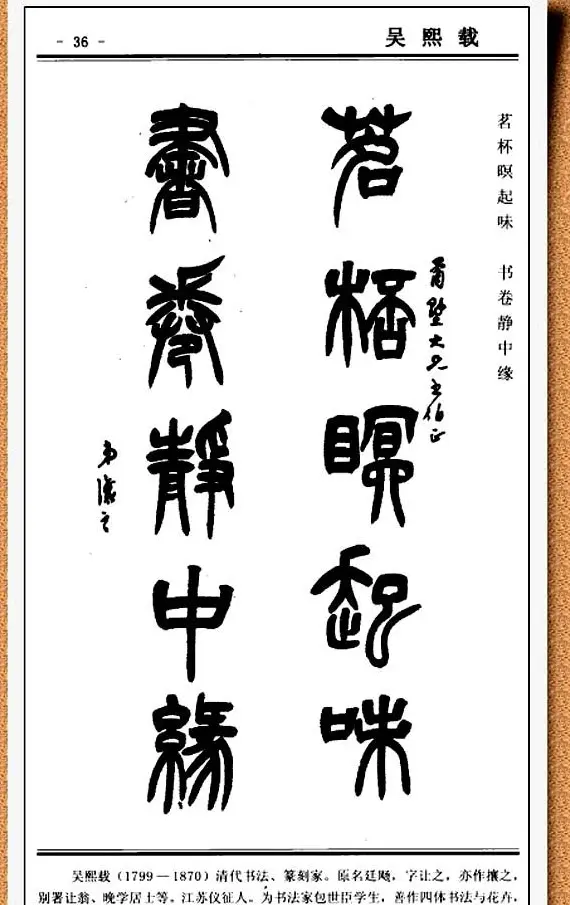 - 36 -
吴熙载
茗杯暝起味 书卷静中缘
茗桮瞑起味
書卷靜中緣
弟讓之
吴熙载（1799—1870）清代书法、篆刻家。原名廷飏，字让之，亦作攘之，
别署让翁、晚学居士等。江苏仪征人。为书法家包世臣学生，善作四体书法与花卉，